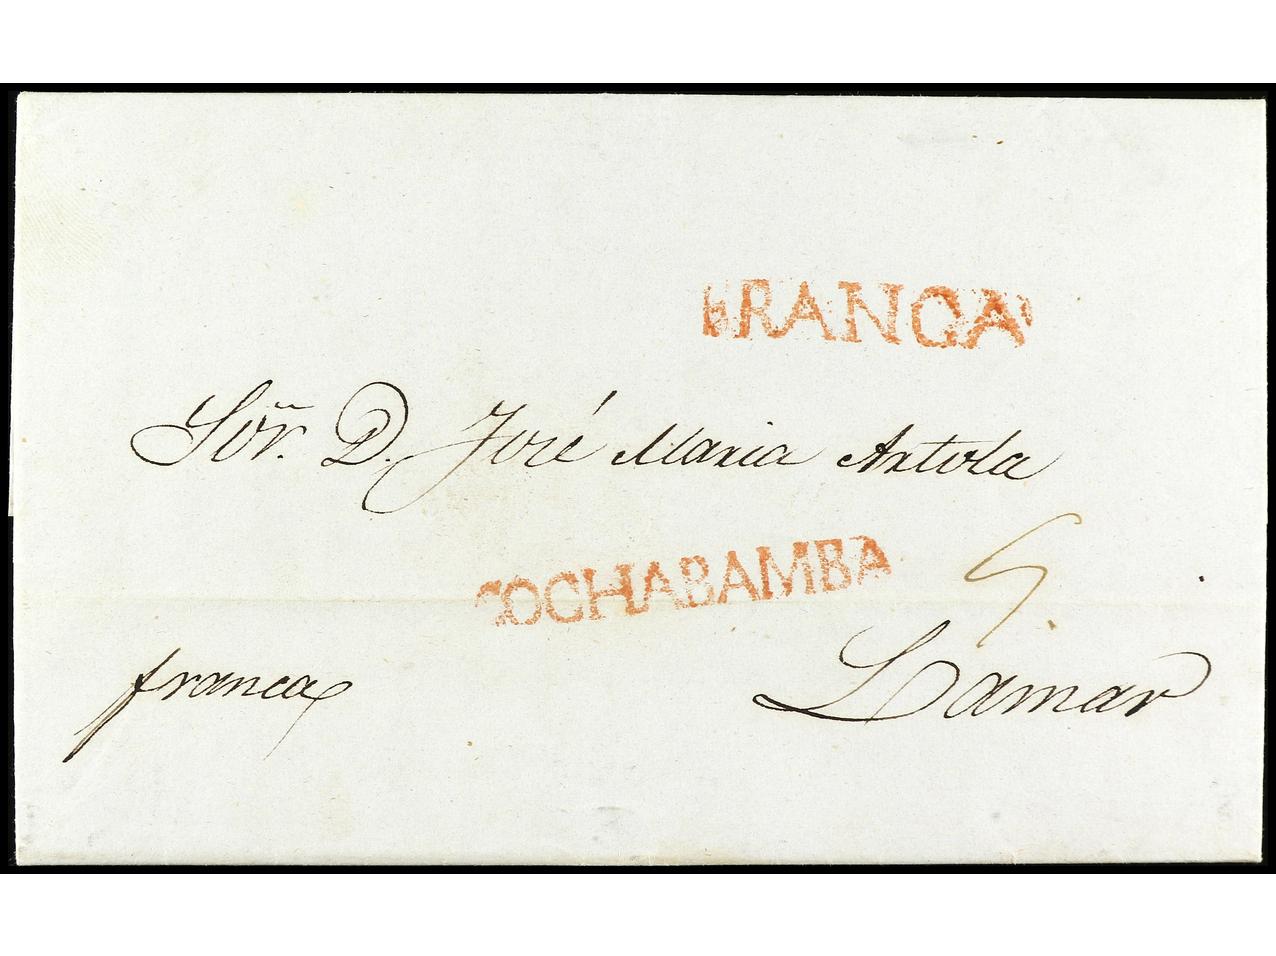 FRANCA
Sõr. D. José Maria Artola
COCHABAMBA
5.
franca
Lamar